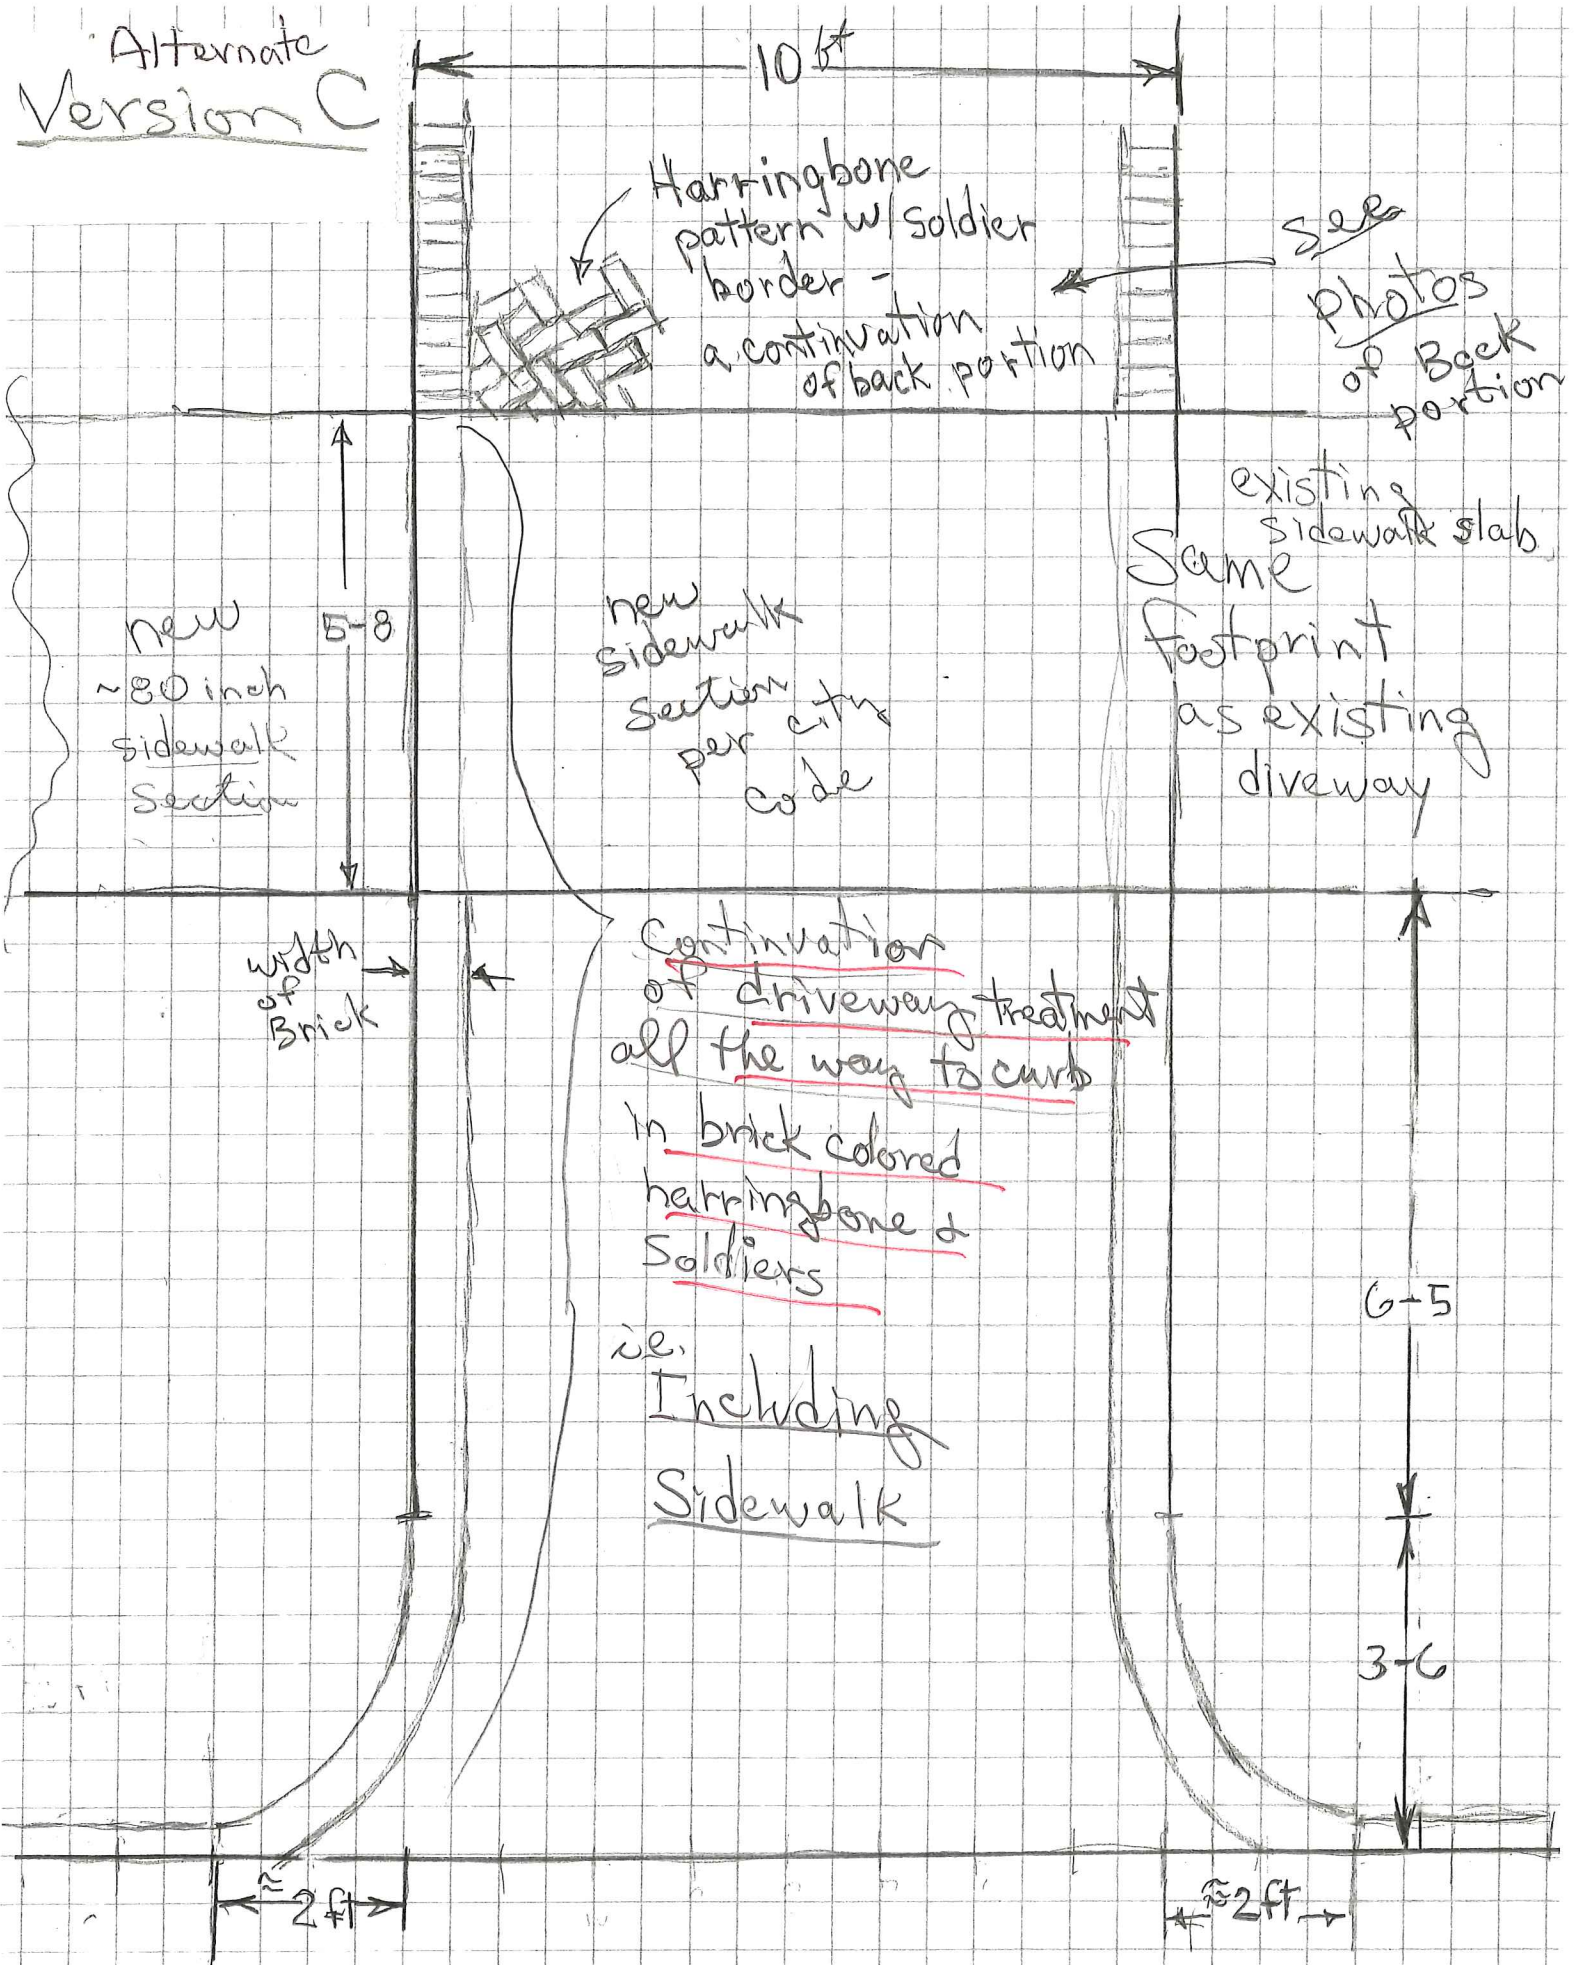 Alternate
Version C
10 ft
Harringbone
pattern w/ soldier
border -
a continuation
of back portion
see
photos
of Back
portion
existing
sidewalk slab
Same
footprint
as existing
diveway
new
~80 inch
sidewalk
section
5-8
new
sidewalk
section
per city
code
width
of
Brick
Continuation
of driveway treatment
all the way to curb
in brick colored
harringbone &
Soldiers
i.e.
Including
Sidewalk
6-5
3-6
≈
2 ft
≈2ft